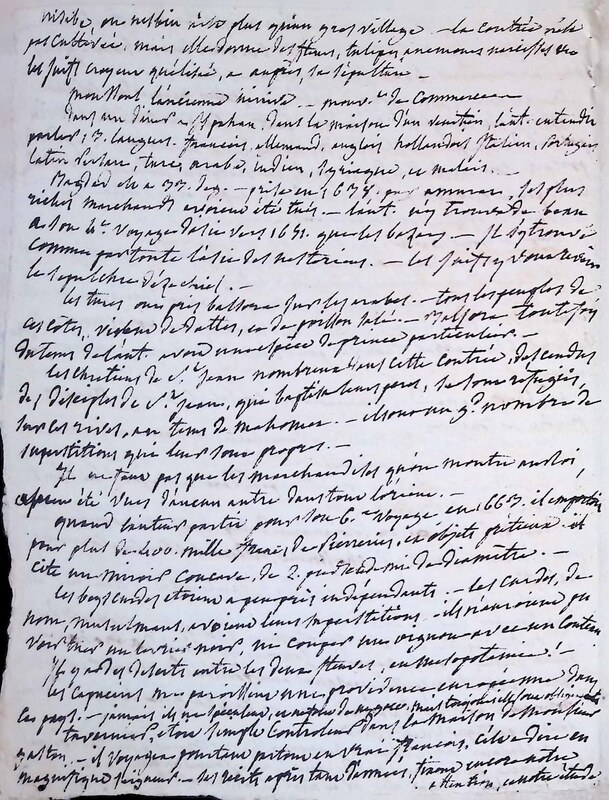 nisibe, ou nesbin n'est plus qu'un gros village - la contrée n'est
pas cultivée, mais elle donne des fleurs, tulipes, anemones narcisses
les juifs croyent qu'élisée, a auprès, sa sépulture -
mousoul, l'ancienne ninive - 
dans un diner a Ispahan, dans la maison d'un venitien, l'aut. entendit
parler, 13. langues. françois, allemand, anglois hollandois Italien, Portugais
latin Persan, turc, arabe, indien, syriaque, et malais. -
Bagdad est a 33. deg. - prise en 1638. par amurat. les plus
riches marchands avoient été tués. - l'aut. n'y trouva de beau
a son 4e. voyage d'asie vers 1651. que les bazars - Il s'y trouve
comme par toute l'asie des nestoriens. - les juifs y vont reverer
le sepulchre d'ezechiel. -
les turcs ont pris balsora sur les arabes. - tous les peuples de
ces côtes, vivent de dattes, et de poisson salé. - Balsora toutefois
du tems de l'aut. avoit une espèce de prince particulier. -
les chrétiens de St. Jean nombreux dans cette contrée, descendus
des disciples de St. Jean, que baptisa leurs peres, se sont refugiés,
sur ces rives, au tems de mahomet. - ils ont un gd. nombre de
superstitions qui leur sont propres. -
Il ne faut pas que les marchandises qu'on montre au roi,
ayent été vues d'aucun autre dans tout l'orient. -
quand l'auteur partit pour son 6e. voyage en 1663. il emportoit
pour plus de 400. mille francs, de Pierreries, et objets précieux. il
cite un miroir concave, de 2. pieds et demi de diamètre. -
les beys curdes etoient a peu près indépendants - les curdes, de
nom, musulmans, avoient leurs superstitions - ils n'auroient pu
voir tuer un chien noir, ni couper un oignon avec un couteau
Il y a des deserts entre les deux fleuves, en mesopotamie! -
les capucins me paroissent une providence européenne dans
ces pays. - jamais ils ne
tavernier, etoit simple controleur dans la maison de monsieur
gaston. - il voyagea pourtant partout en vrai françois, c'est a dire en
magnifique seigneur. - ses récits après tant d'années, fixent encore notre
attention, et notre étude